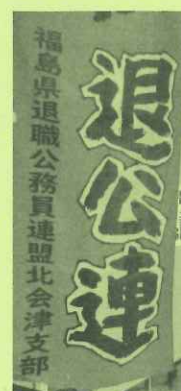 退公連
福島県退職公務員連盟北会津支部